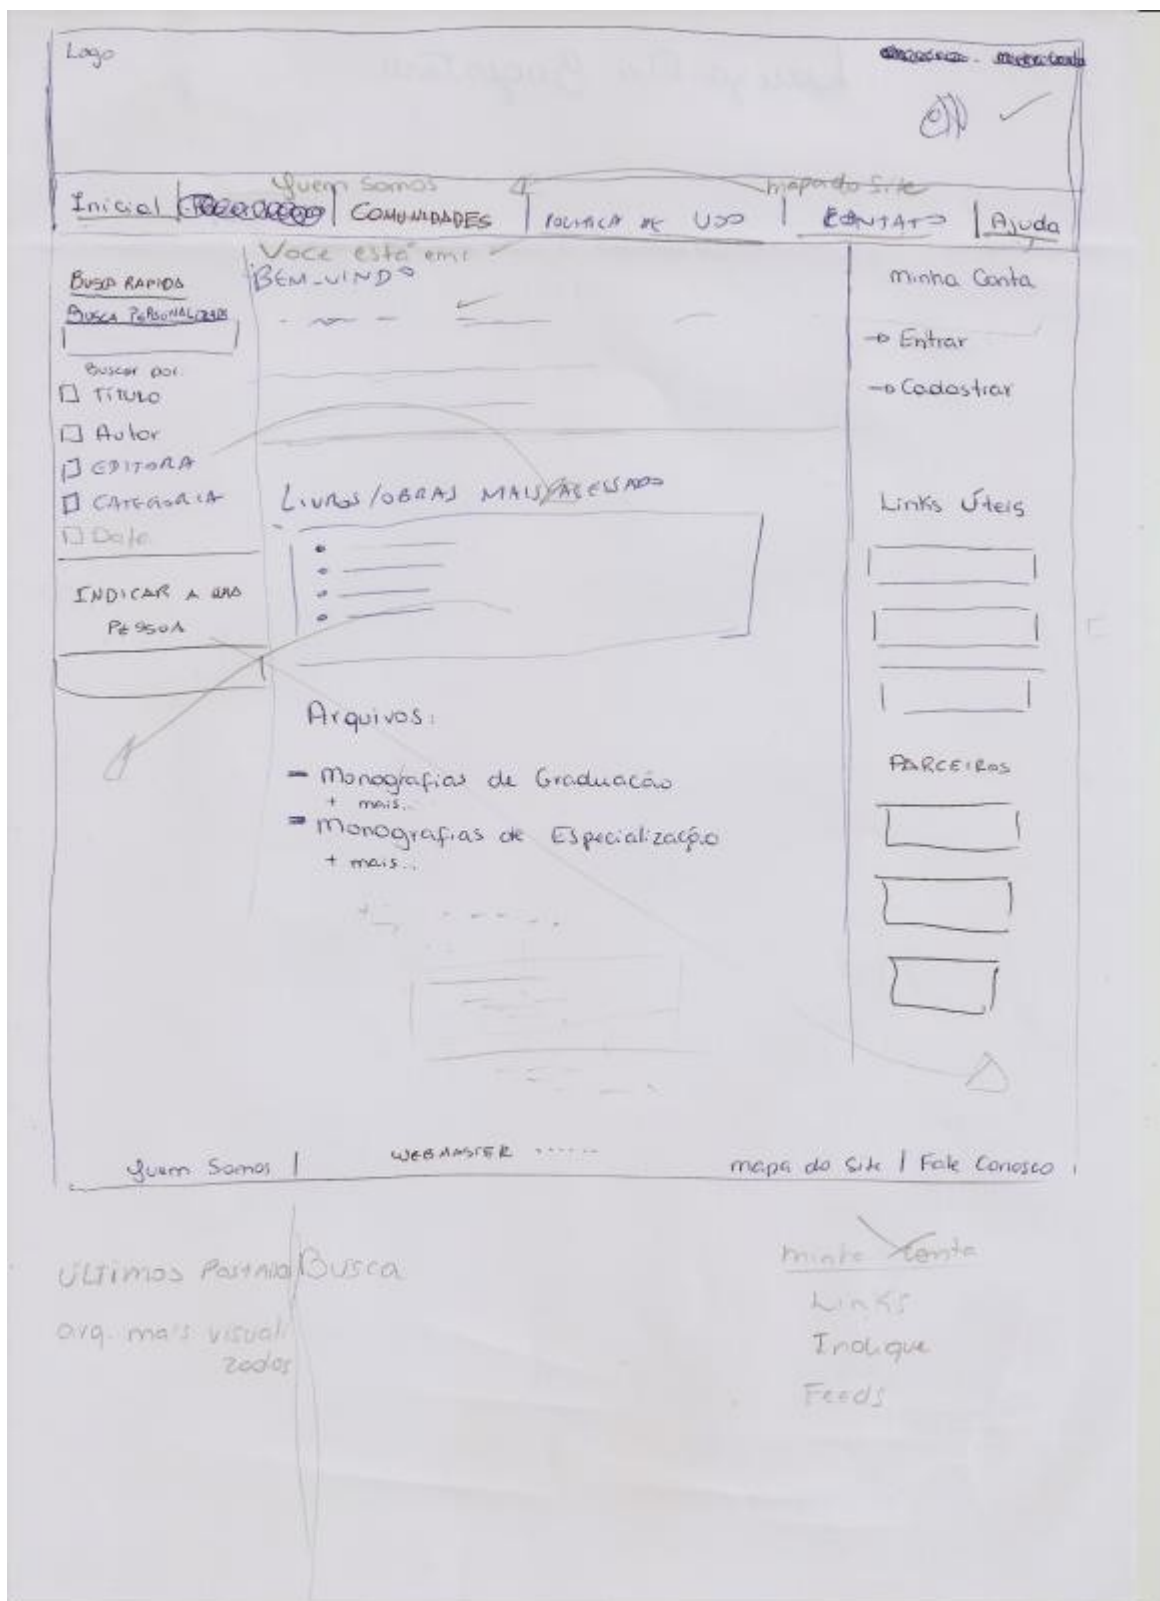 Logo
Quem Somos
mapa do Site
Inicial | COMUNIDADES | POLITICA DE USO | CONTATO | Ajuda
Voce está em:
BEM-VINDO
BUSCA RAPIDA
BUSCA PERSONALIZADA
Buscar por:
TITULO
Autor
EDITORA
CATEGORIA
Data
INDICAR A UMA
PESSOA
LIVROS/OBRAS MAIS ACESSADO
Arquivos:
- Monografias de Graduação
+ mais...
- Monografias de Especialização
+ mais...
minha Conta
→ Entrar
→ Cadastrar
Links Úteis
PARCEIROS
Quem Somos |
WEBMASTER ......
mapa do Site | Fale Conosco
ÚLTIMOS
Busca
arq. mais visuali
zados
minha Conta
Links
Indique
Feeds